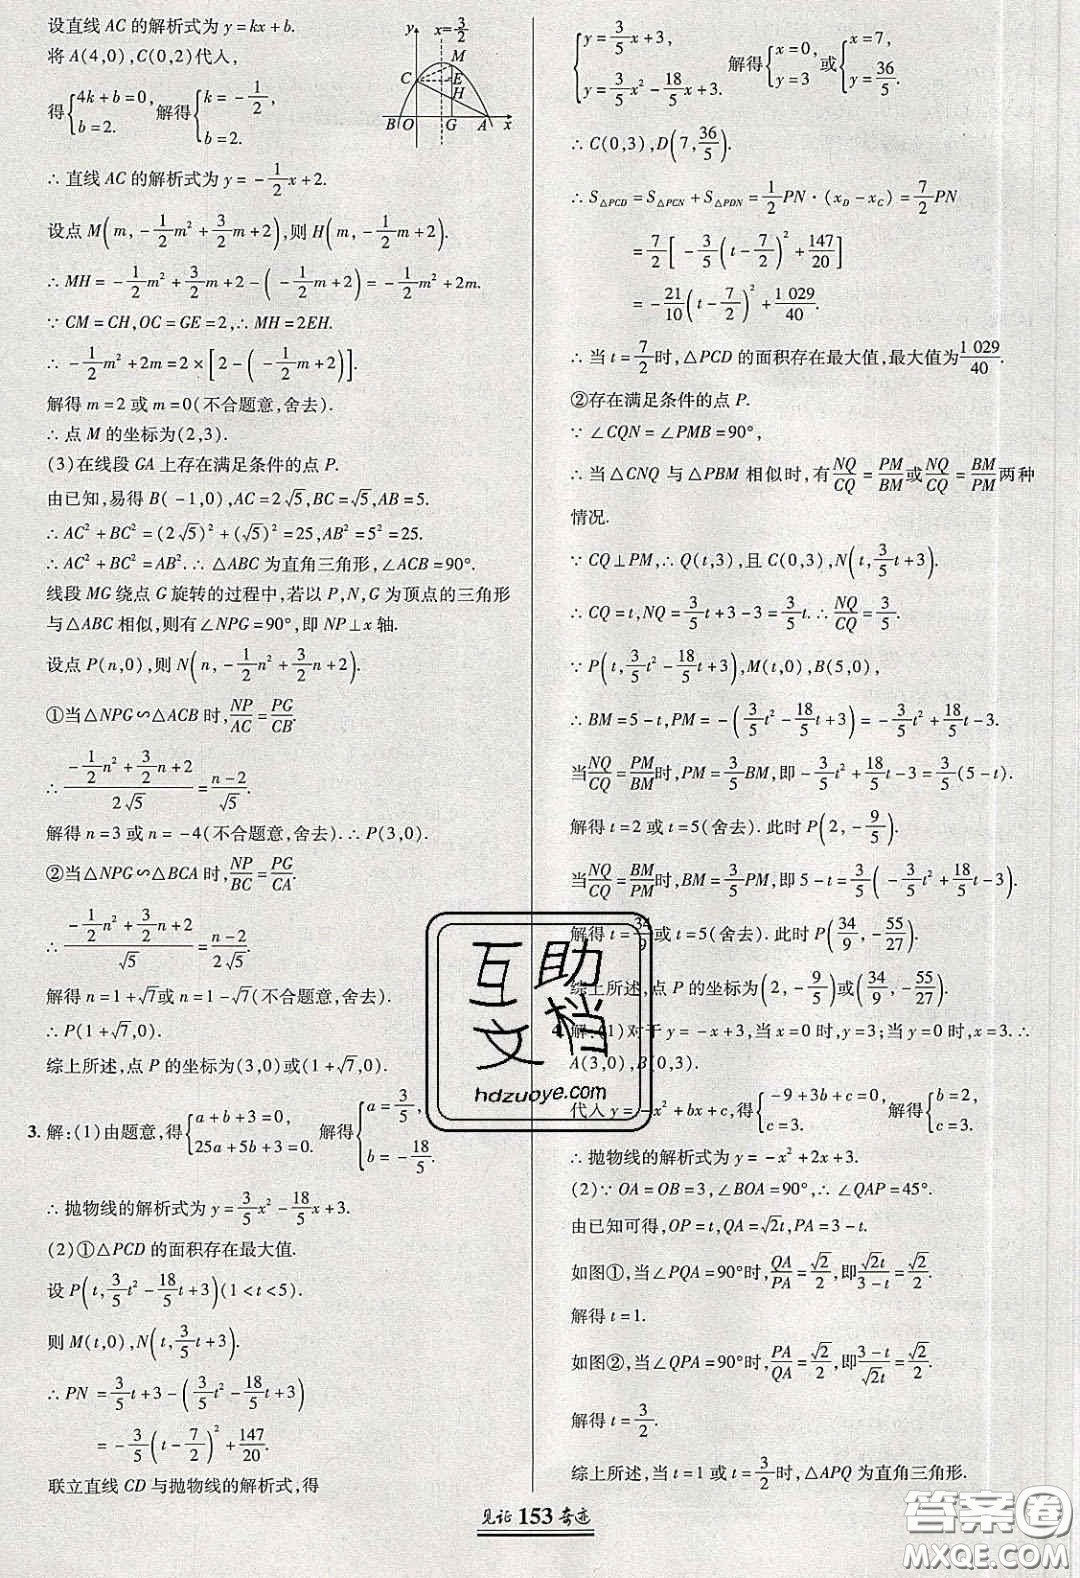 设直线 AC 的解析式为 y=kx+b.
将 A(4,0),C(0,2)代人,
得{4k+b=0, b=2. 解得{k=-1/2, b=2.
y x=3/2 M C E H B O G A x
∴ 直线 AC 的解析式为 y=-1/2x+2.
设点 M(m,-1/2m²+3/2m+2),则 H(m,-1/2m+2).
∴ MH=-1/2m²+3/2m+2-(-1/2m+2)=-1/2m²+2m.
∵ CM=CH,OC=GE=2,∴ MH=2EH.
∴ -1/2m²+2m=2×[2-(-1/2m+2)].
解得 m=2 或 m=0(不合题意,舍去).
∴ 点 M 的坐标为(2,3).
(3)在线段 GA 上存在满足条件的点 P.
由已知,易得 B(-1,0),AC=2√5,BC=√5,AB=5.
∴ AC²+BC²=(2√5)²+(√5)²=25,AB²=5²=25.
∴ AC²+BC²=AB².∴ △ABC 为直角三角形,∠ACB=90°.
线段 MG 绕点 G 旋转的过程中,若以 P,N,G 为顶点的三角形
与△ABC 相似,则有∠NPG=90°,即 NP⊥x 轴.
设点 P(n,0),则 N(n,-1/2n²+3/2n+2).
①当△NPG∽△ACB 时,NP/AC=PG/CB.
∴ (-1/2n²+3/2n+2)/(2√5)=(n-2)/√5.
解得 n=3 或 n=-4(不合题意,舍去).∴ P(3,0).
②当△NPG∽△BCA 时,NP/BC=PG/CA.
∴ (-1/2n²+3/2n+2)/√5=(n-2)/(2√5).
解得 n=1+√7或 n=1-√7(不合题意,舍去).
∴ P(1+√7,0).
综上所述,点 P 的坐标为(3,0)或(1+√7,0).
3. 解:(1)由题意,得{a+b+3=0, 25a+5b+3=0. 解得{a=3/5, b=-18/5.
∴ 抛物线的解析式为 y=3/5x²-18/5x+3.
(2)①△PCD 的面积存在最大值.
设 P(t,3/5t²-18/5t+3)(1<t<5).
则 M(t,0),N(t,3/5t+3).
∴ PN=3/5t+3-(3/5t²-18/5t+3)
=-3/5(t-7/2)²+147/20.
联立直线 CD 与抛物线的解析式,得
{y=3/5x+3, y=3/5x²-18/5x+3. 解得{x=0, y=3 或{x=7, y=36/5.
∴ C(0,3),D(7,36/5).
∴ S△PCD=S△PCN+S△PDN=1/2PN·(xD-xC)=7/2PN
=7/2[-3/5(t-7/2)²+147/20]
=-21/10(t-7/2)²+1 029/40.
∴ 当 t=7/2时,△PCD 的面积存在最大值,最大值为1 029/40.
②存在满足条件的点 P.
∵ ∠CQN=∠PMB=90°,
∴ 当△CNQ 与△PBM 相似时,有NQ/CQ=PM/BM或NQ/CQ=BM/PM两种
情况.
∵ CQ⊥PM,∴ Q(t,3),且 C(0,3),N(t,3/5t+3).
∴ CQ=t,NQ=3/5t+3-3=3/5t.∴ NQ/CQ=3/5.
∵ P(t,3/5t²-18/5t+3),M(t,0),B(5,0),
∴ BM=5-t,PM=-(3/5t²-18/5t+3)=-3/5t²+18/5t-3.
当NQ/CQ=PM/BM时,PM=3/5BM,即-3/5t²+18/5t-3=3/5(5-t).
解得 t=2 或 t=5(舍去).此时 P(2,-9/5).
当NQ/CQ=BM/PM时,BM=3/5PM,即 5-t=3/5(-3/5t²+18/5t-3).
解得 t=34/9或 t=5(舍去).此时 P(34/9,-55/27).
综上所述,点 P 的坐标为(2,-9/5)或(34/9,-55/27).
4. 解:(1)对于 y=-x+3,当 x=0 时,y=3;当 y=0 时,x=3.∴
A(3,0),B(0,3).
代人 y=-x²+bx+c,得{-9+3b+c=0, c=3. 解得{b=2, c=3.
∴ 抛物线的解析式为 y=-x²+2x+3.
(2)∵ OA=OB=3,∠BOA=90°,∴ ∠QAP=45°.
由已知可得,OP=t,QA=√2t,PA=3-t.
如图①,当∠PQA=90°时,QA/PA=√2/2,即√2t/(3-t)=√2/2.
解得 t=1.
如图②,当∠QPA=90°时,PA/QA=√2/2,即(3-t)/√2t=√2/2.
解得 t=3/2.
综上所述,当 t=1 或 t=3/2时,△APQ 为直角三角形.
互助
文档
hdzuoye.com
见证 153 奇迹
答案圈
MXQE.COM